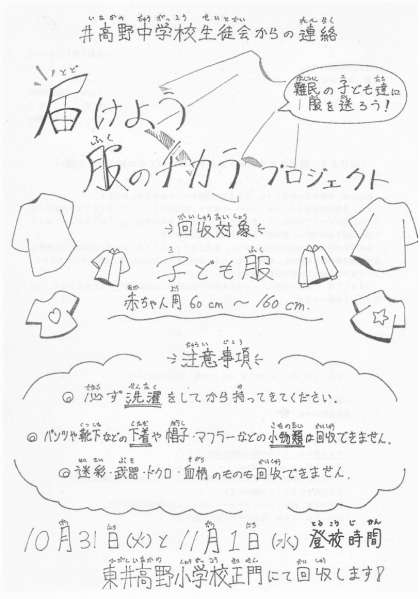 井高野中学校生徒会からの連絡
難民の子ども達に
服を送ろう!
届けよう
服のチカラ プロジェクト
回収対象
子ども服
赤ちゃん用 60cm 〜 160cm.
注意事項
◎ 必ず洗濯をしてから持ってきてください.
◎ パンツや靴下などの下着や帽子・マフラーなどの小物類は回収できません.
◎ 迷彩・武器・ドクロ・血柄のものも回収できません.
10月31日(火)と11月1日(水) 登校時間
東井高野小学校正門にて回収します!